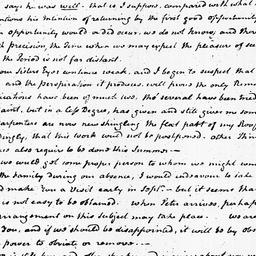 says he was well - that is I suppose, compared with what
intions his intention of returning by the first good opportunity
opportunity would a'd occur, we do not know; and
th precision, the time when we may expect the pleasure of see
the Period is not far distant.
our Sisters Eyes continue weak, and I begin to suspect that
and the perspiration it produces, will prove the only Reme
ications have been of much use, tho' several have been tried
aint, but in a less Degree, has given and still gives me some
Carpenters are now new shingling the flat part of my Roof
dingly, that this work could not be postponed. Other Thin
es also require to be done this Summer. -
we could get some proper person to whom we might comm
the Family during our absence, I would endeavour to take
and make you a Visit early in Septr. - but it seems tha
is not easy to be obtained. When Peter arrives, perhaps
arrangement on this subject may take place. we are
you, and if we should be disappointed, it will be by obs
power to obviate or remove. -